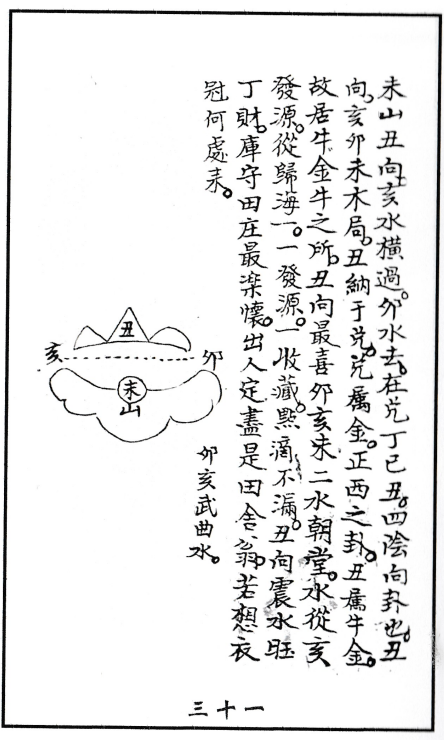 未山丑向。亥水橫過。卯水去。在兑丁巳丑。四陰向卦也。丑
向。亥卯未木局。丑納于兑。兑屬金。正西之卦。丑屬牛金。
故居牛金牛之所。丑向最喜卯亥未二水朝堂。水從亥
發源。從歸海一。一發源。一收藏。點滴不漏。丑向震水旺
丁財。庫守田庄最楽懷。出人定盡是田舍翁。若想衣
冠何處来。
丑
亥
卯
未
山
卯亥武曲水。
三十一